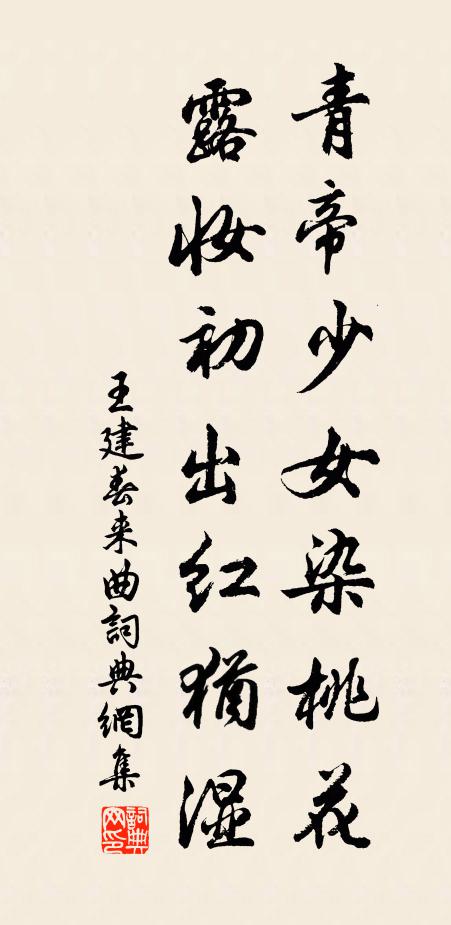 青帝少女染桃花
露妆初出红犹湿
王建春来曲詞典網集
詞典网印